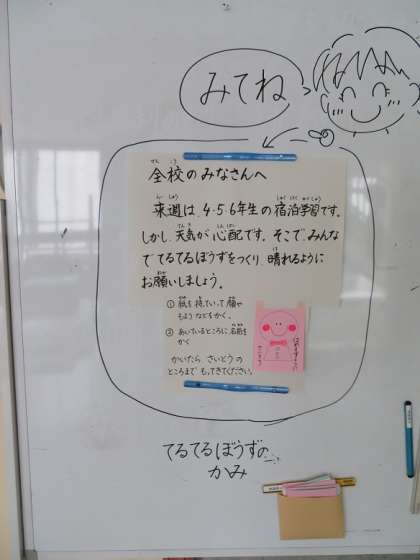 みてね
全校のみなさんへ
来週は、4・5・6年生の宿泊学習です。
しかし、天気が心配です。そこで、みんな
でてるてるぼうずをつくり、晴れるように
お願いしましょう。
① 紙を持っていって顔や
もようなどをかく。
② あいているところに名前を
かく
かいたら、さいとうの
ところまでもってきてください。
てるてるぼうずの
かみ